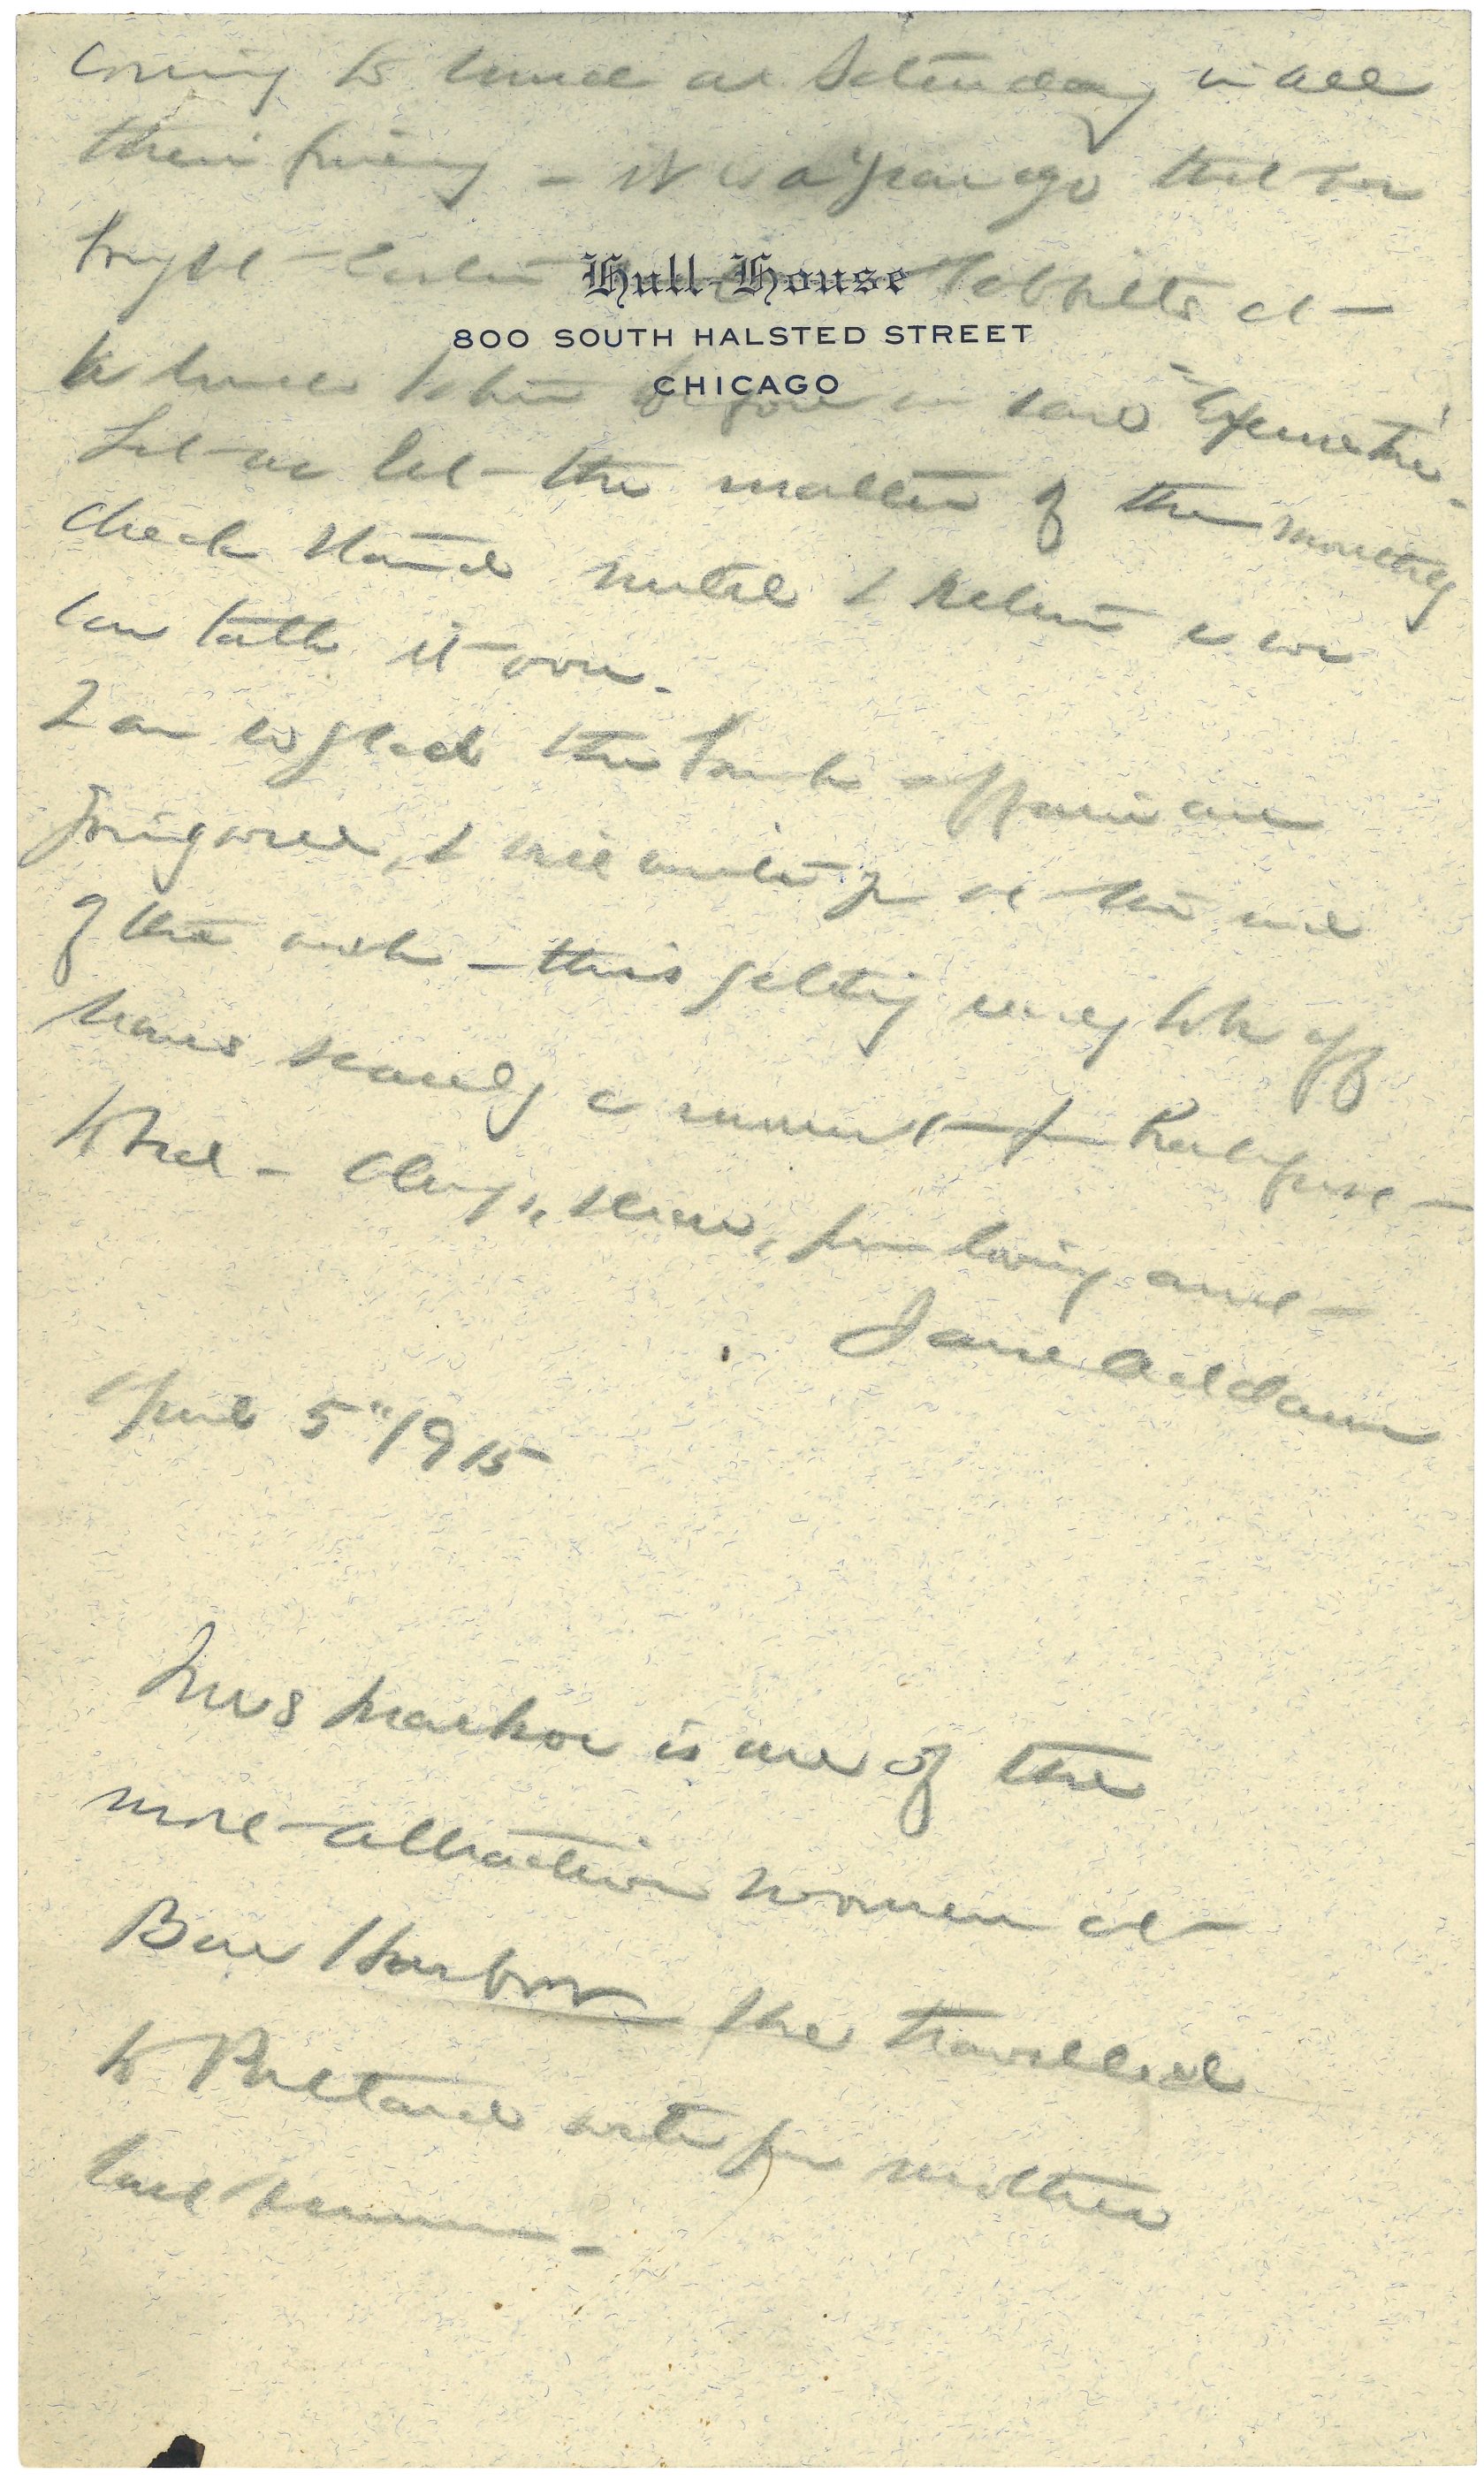 coming to lunch on Saturday in all
their finery - it is a year ago that we
bought Easter rabbits at
before in said "Expenditure"
Let us let the matter of the monthly
check stand until I return & we
can talk it over.
I am so glad the Frank affairs are
going well, I will write you at the end
of the week - this getting ready to be off
leaves scarcely a moment for
to that - Always, dear, your loving aunt
Jane Addams
April 5" 1915
Hull-House
800 SOUTH HALSTED STREET
CHICAGO
Mrs is one of the
most attractive women at
Bar Harbor she travelled
to Portland with your mother
last summer -